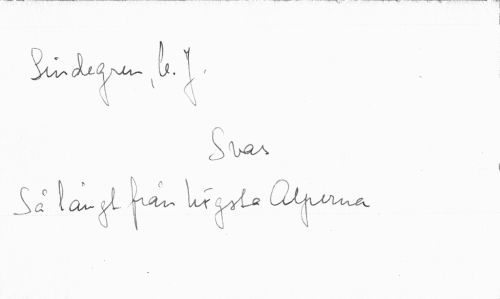 Lindegren, C. J.
Svar
Så långt från högsta Alperna